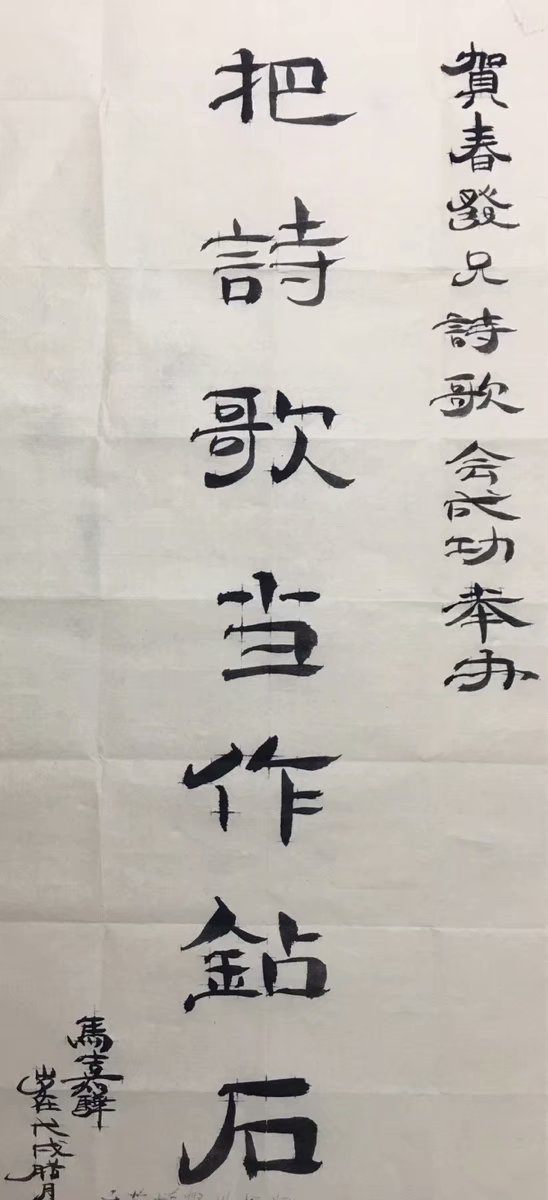 賀春發兄詩歌会成功举办
把詩歌当作鉆石
馬嘉驊
岁在戊戌腊月